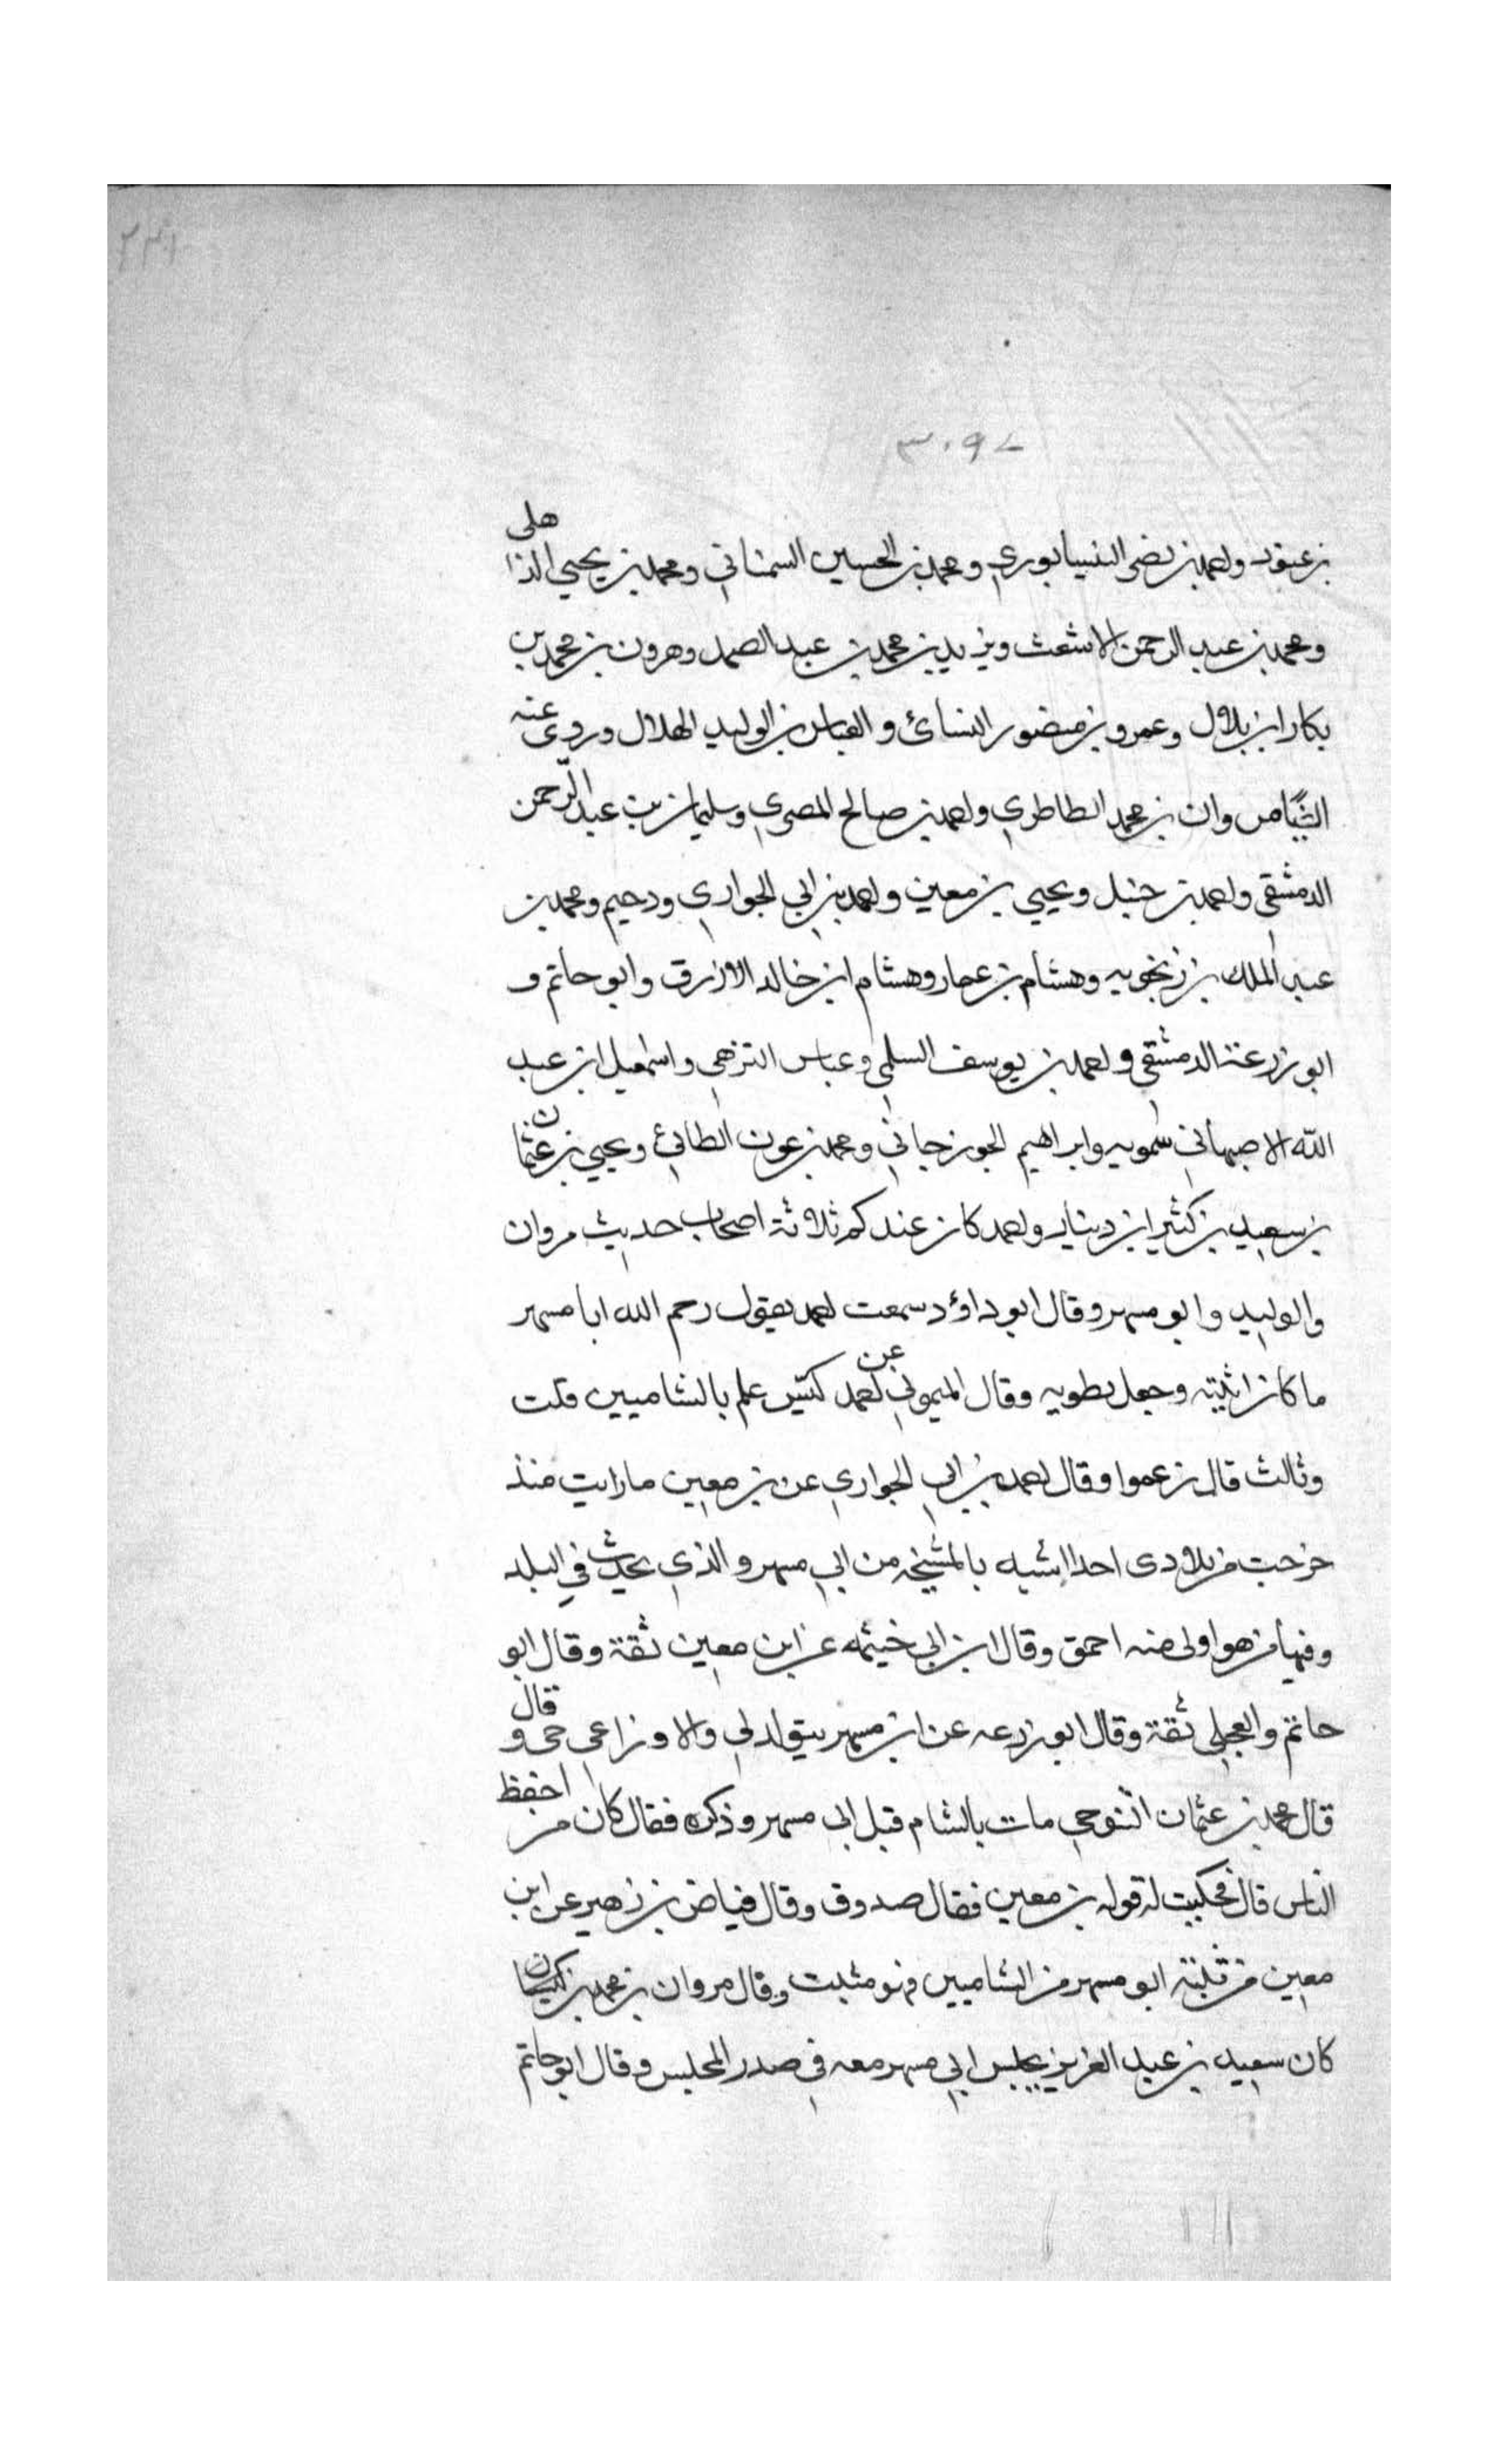 ٢٣١
٣٠٩٧
بن عبود واحمد بن نضر النيسابوري ومحمد بن الحسين السمناني ومحمد بن يحيي الذهلى
ومحمد بن عبد الرحمن الاشعث ويزيد بن محمد بن عبد الصمد وهرون بن محمد بن
بكار ابن بلال وعمرو بن منصور النسائ والعباس بن الوليد الهلال وروى عنه
ايضًا مروان بن محمد الطاطري واحمد بن صالح المصري وسليمان بن عبد الرحمن
الدمشقي واحمد بن حنبل ويحيي بن معين واحمد بن ابي الجواري ودحيم ومحمد بن
عبد الملك بن زنجويه وهشام بن عمار وهشام ابن خالد الازرق وابو حاتم و
ابو زرعة الدمشقي واحمد بن يوسف السلمي وعباس الترهمي واسمعيل ابن عبد
الله الاصبهاني سمويه وابراهيم الجوزجاني ومحمد بن عون الطائئ ويحيي بن عثمان
بن سعيد بن كثير ابن دينار واحمد كان عندكم ثلاثة اصحاب حديث مروان
والوليد وابو مسهر وقال ابو داؤد سمعت احمد يقول رحم الله ابا مسهر
ما كان اثبته وجعل يطويه وقال الميموني عن احمد كيس علم بالشاميين قلت
وثالث قال زعموا وقال احمد بن ابي الجواري عن بن معين مارايت منذ
خرجت من بلادى احدا اشبه بالمشيخه من ابي مسهر والذي يحدث في البلد
وفيها من هو اولى منه احمق وقال ابن ابي خيثمه عن ابن معين ثقة وقال ابو
حاتم والعجلي ثقة وقال ابو زرعه عن ابن مسهر يقول لي والاوزاعي حي وقال
قال محمد بن عثمان التنوحي مات بالشام قبل ابي مسهر وذكره فقال كان من احفظ
الناس قال فحكيت له قوله بن معين فقال صدوق وقال فياض بن زهير عن ابن
معين من ثبته ابو مسهر من الشاميين فهو مثبت وقال مروان بن محمد بن كيسان
كان سعيد بن عبد العزيز يجلس ابي مسهر معه في صدر المجلس وقال ابو حاتم